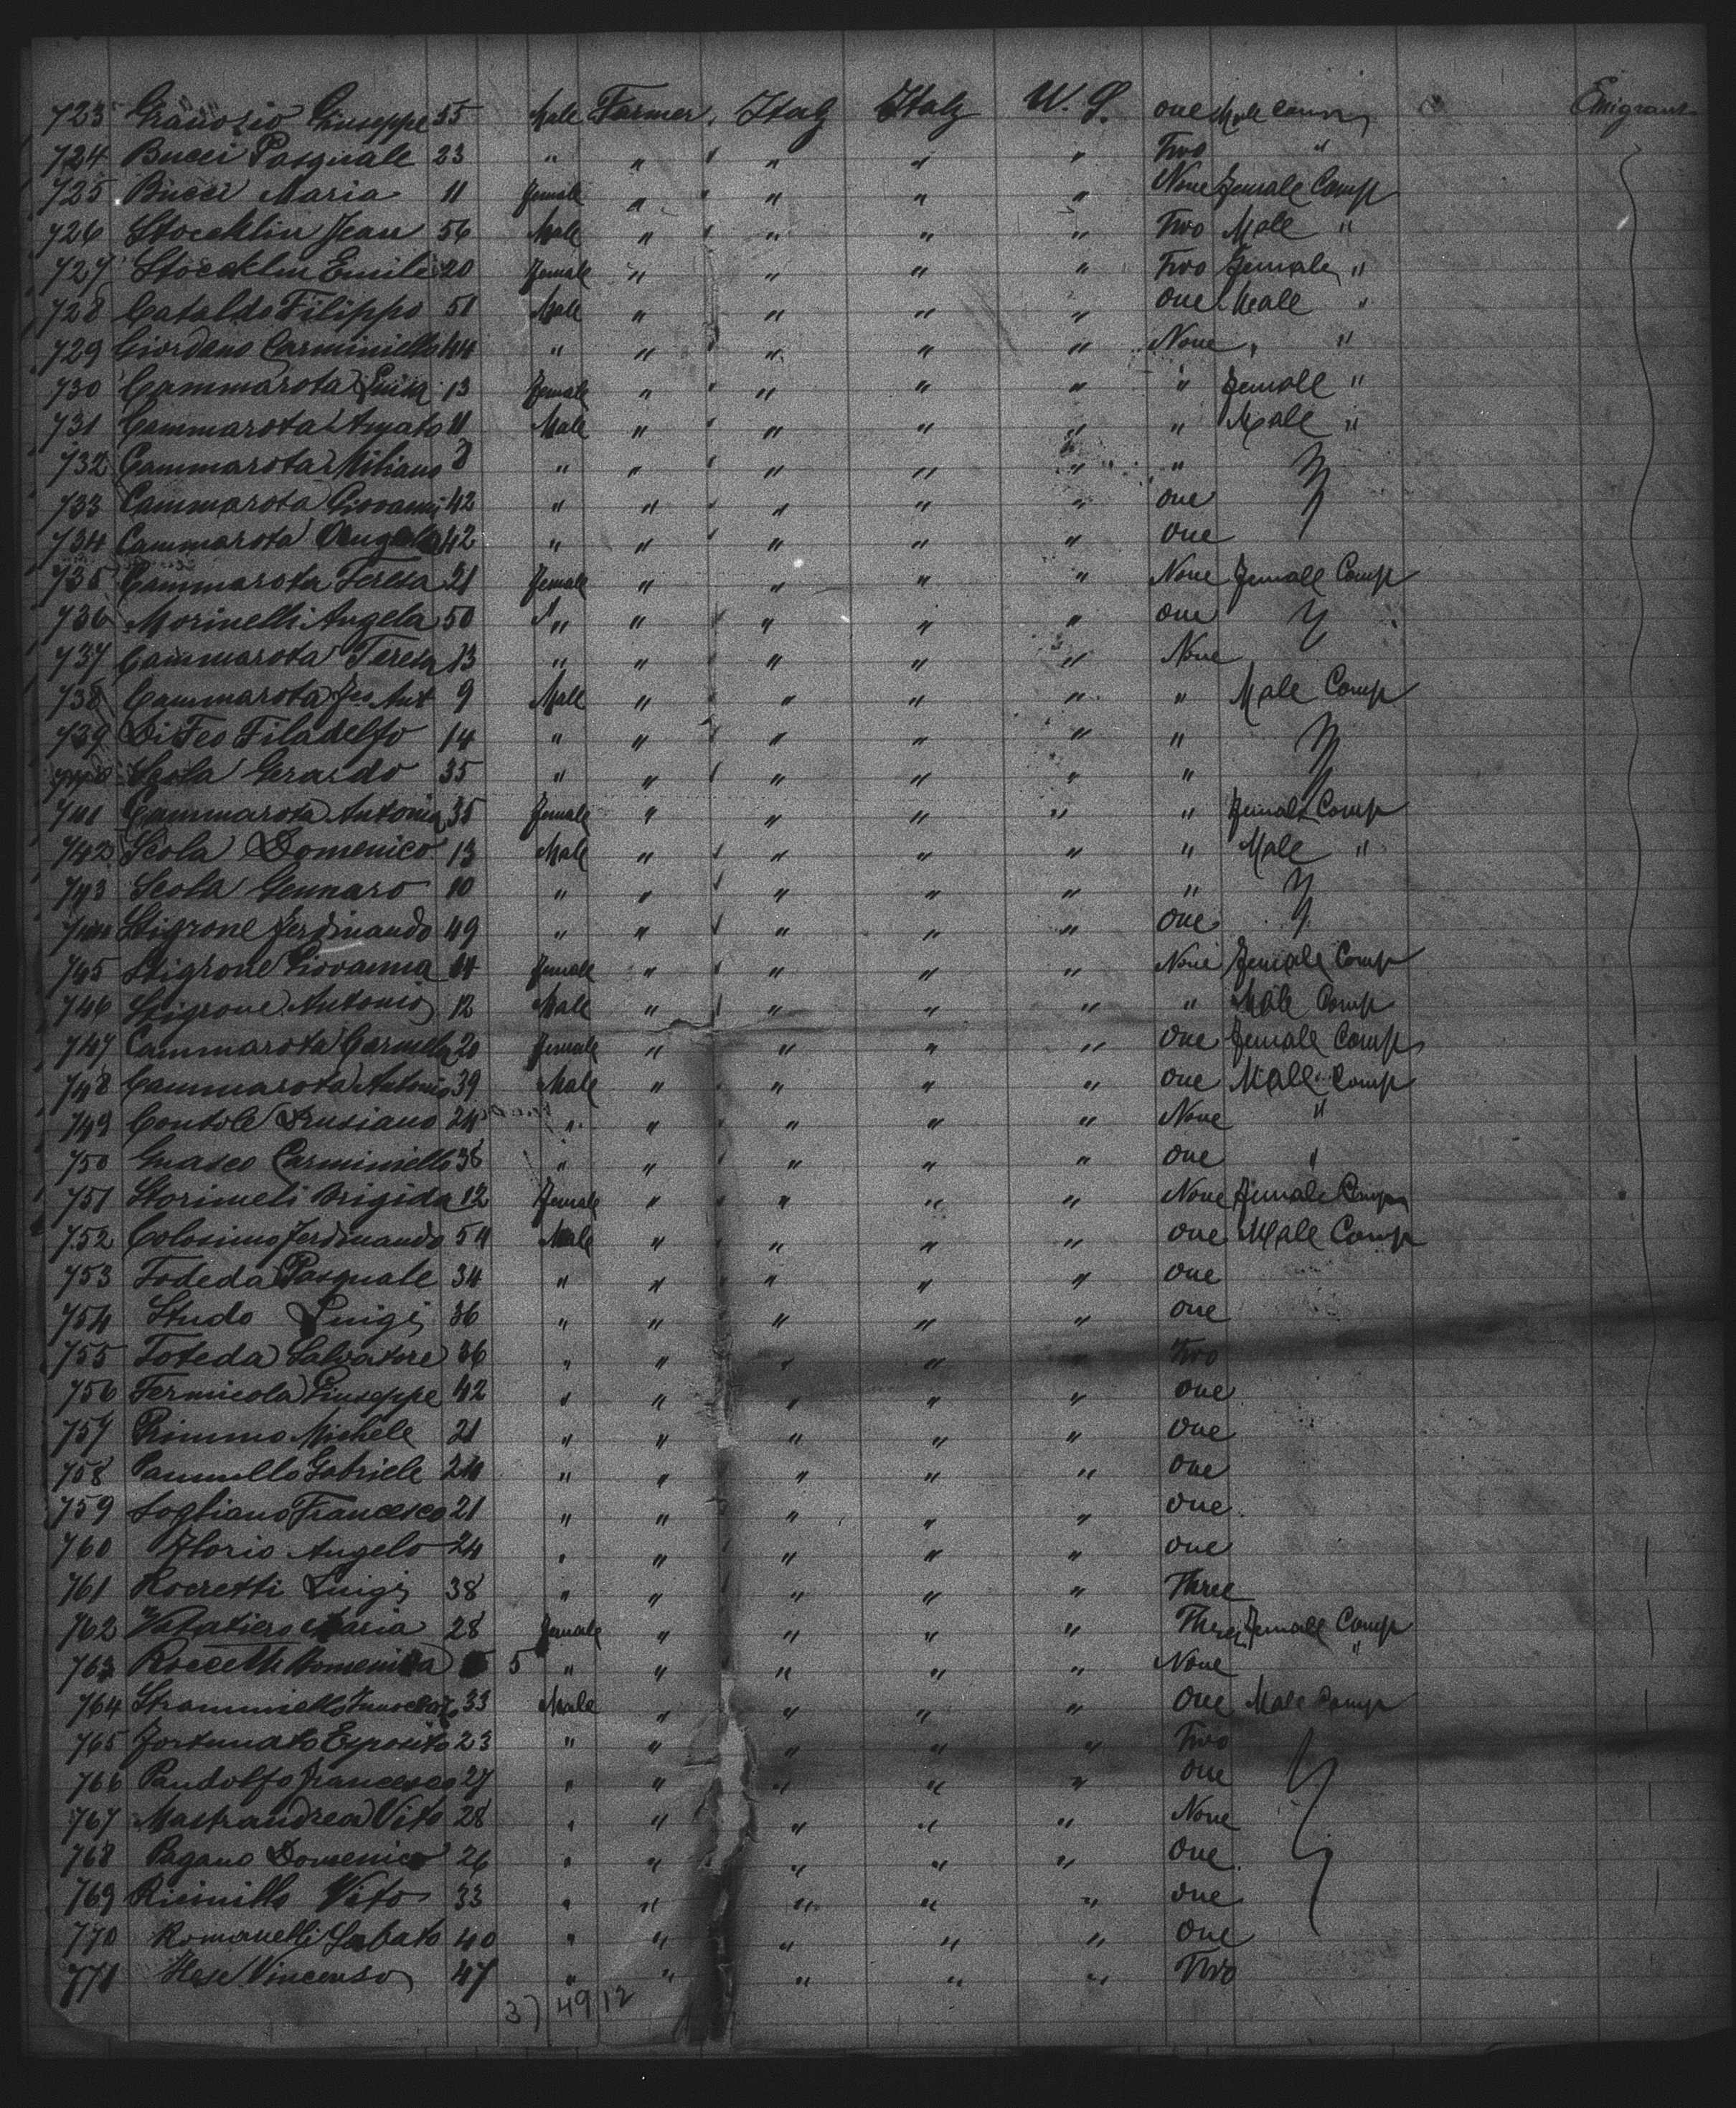 723 Graurosio Giuseppe 55 Male Farmer, Italy Italy U. S. one Male Comp Emigrant
724 Bucci Pasquale 23 " " " " " Two "
725 Bucci Maria 11 Female " " " " None Female Comp
726 Stoecklin Jean 56 Male " " " " Two Male "
727 Stoecklin Emilie 20 Female " " " " Two Female "
728 Cataldo Filippo 51 Male " " " " one Male "
729 Giordano Carminiello 44 " " " " " None " "
730 Cammarota Luisa 13 Female " " " " " Female "
731 Cammarota Amato 11 Male " " " " " Male "
732 Cammarota Miliano 8 " " " " " "
733 Cammarota Giovanni 42 " " " " " one
734 Cammarota Angelo 42 " " " " " one
735 Cammarota Teresa 21 Female " " " " None Female Comp
736 Morinelli Angela 50 " " " " " one
737 Cammarota Teresa 13 " " " " " None
738 Cammarota Ant 9 Male " " " " " Male Comp
739 Di Feo Filadelfo 14 " " " " " "
740 Scola Gerardo 35 " " " " " "
741 Cammarota Antonia 35 Female " " " " " Female Comp
742 Scola Domenico 13 Male " " " " " Male "
743 Scola Gennaro 10 " " " " " "
744 Stigrone Ferdinando 49 " " " " " one
745 Stigrone Giovanna 14 Female " " " " None Female Comp
746 Stigrone Antonio 12 Male " " " " " Male Comp
747 Cammarota Carmela 20 Female " " " " one Female Comp
748 Cammarota Antonio 39 Male " " " " one Male Comp
749 Contole Drusiano 24 " " " " " None "
750 Guasco Carminiello 38 " " " " " one "
751 Storimeli Brigida 12 Female " " " " None Female Comp
752 Colosimo Ferdinando 54 Male " " " " one Male Comp
753 Fodeda Pasquale 34 " " " " " one
754 Studo Luigi 36 " " " " " one
755 Toteda Salvatore 36 " " " " " Two
756 Fermicola Giuseppe 42 " " " " " one
757 Primmo Michele 21 " " " " " one
758 Pannullo Gabriele 24 " " " " " one
759 Sogliano Francesco 21 " " " " " one
760 Florio Angelo 24 " " " " " one
761 Rocretti Luigi 38 " " " " " Three
762 Vatatiero Maria 28 Female " " " " Three Female Comp
763 Roccetti Domenica 5 " " " " " None "
764 Stramiello 33 Male " " " " one Male Comp
765 Fortunato Esposito 23 " " " " " Two
766 Pandolfo Francesco 27 " " " " " one
767 Mastrandrea Vito 28 " " " " " None
768 Pagano Domenico 26 " " " " " one
769 Ricinillo Vito 33 " " " " " one
770 Romanelli Sabato 40 " " " " " one
771 Hese Vincenso 47 " " " " " Two
37 49 12